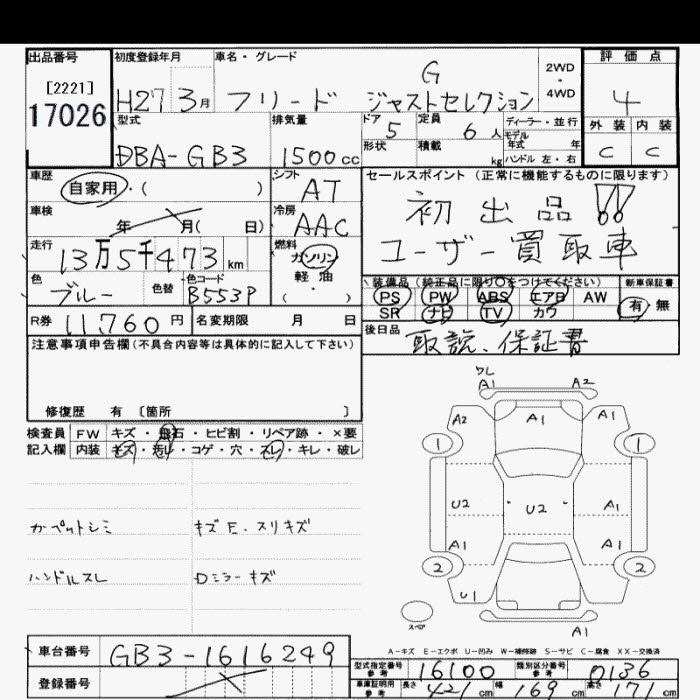 出品番号 [2221] 17026
初度登録年月 H27 3月
車名・グレード G
フリード ジャストセレクション
2WD・4WD
評価点 4
外装 内装
C C
型式 DBA-GB3
排気量 1500cc
ドア 5
定員 6人
形状 積載 kg
ディーラー・並行
モデル年式 年
ハンドル 左・右
車歴 自家用・( )
シフト AT
車検 年 月( 日)
冷房 AAC
走行 13万5千473km
燃料 ガソリン 軽・油 ( )
色 ブルー 色替 色コード B553P
R券 11,760円 名変期限 月 日
セールスポイント (正常に機能するものに限ります)
初出品!!
ユーザー買取車
装備品 (純正品に限り○をつけてください) 新車保証書
PS PW ABS エアB AW 有・無
SR ナビ TV カワ
後日品 取説、保証書
注意事項申告欄(不具合内容等は具体的に記入して下さい)
修復歴 有 [箇所 ]
検査員 FW キズ・飛石・ヒビ割・リペア跡・×要
記入欄 内装 キズ・汚れ・コゲ・穴・スレ・キレ・破レ
カーペットシミ キズE.スリキズ
ハンドルスレ Dミラーキズ
ワレ
A1 A2
A2 A1 A1
1 1
U2 U2 A1
A1 A1
2 2
U1
スペア
A1
A-キズ E-エクボ U-凹み W-補修跡 S-サビ C-腐食 XX-交換済
車台番号 GB3-1616249
登録番号
型式指定番号 参考 16100 類別区分番号 参考 0136
車庫証明用 参考 長さ 421cm 幅 169cm 高さ 171cm